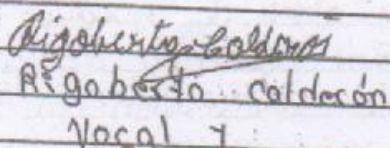 Rigoberto Calderón
Rigoberto calderón
Vocal 1